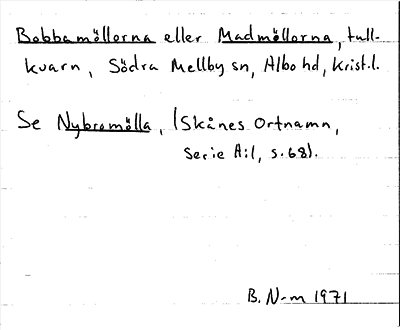 Bobbamöllorna eller Madmöllorna, tull-
kvarn, Södra Mellby sn, Albo hd, Krist.l.
Se Nybromölla, (Skånes Ortnamn,
Serie A:1, s.68).
B. N-m 1971